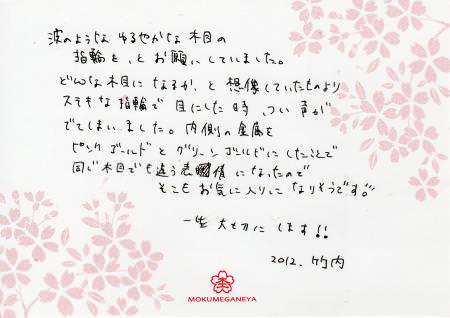 波のような ゆるやかな 木目の
指輪を、と お願いしていました。
どんな木目になるか、と 想像していたものより
ステキな指輪で 目にした時、つい 声が
でてしまいました。内側の金属を
ピンクゴールドと グリーンゴールドにしたことで
同じ木目でも違う表情になったので
そこも お気に入りに なりそうです!!
一生 大切に します!!
2012. 竹内
MOKUMEGANEYA